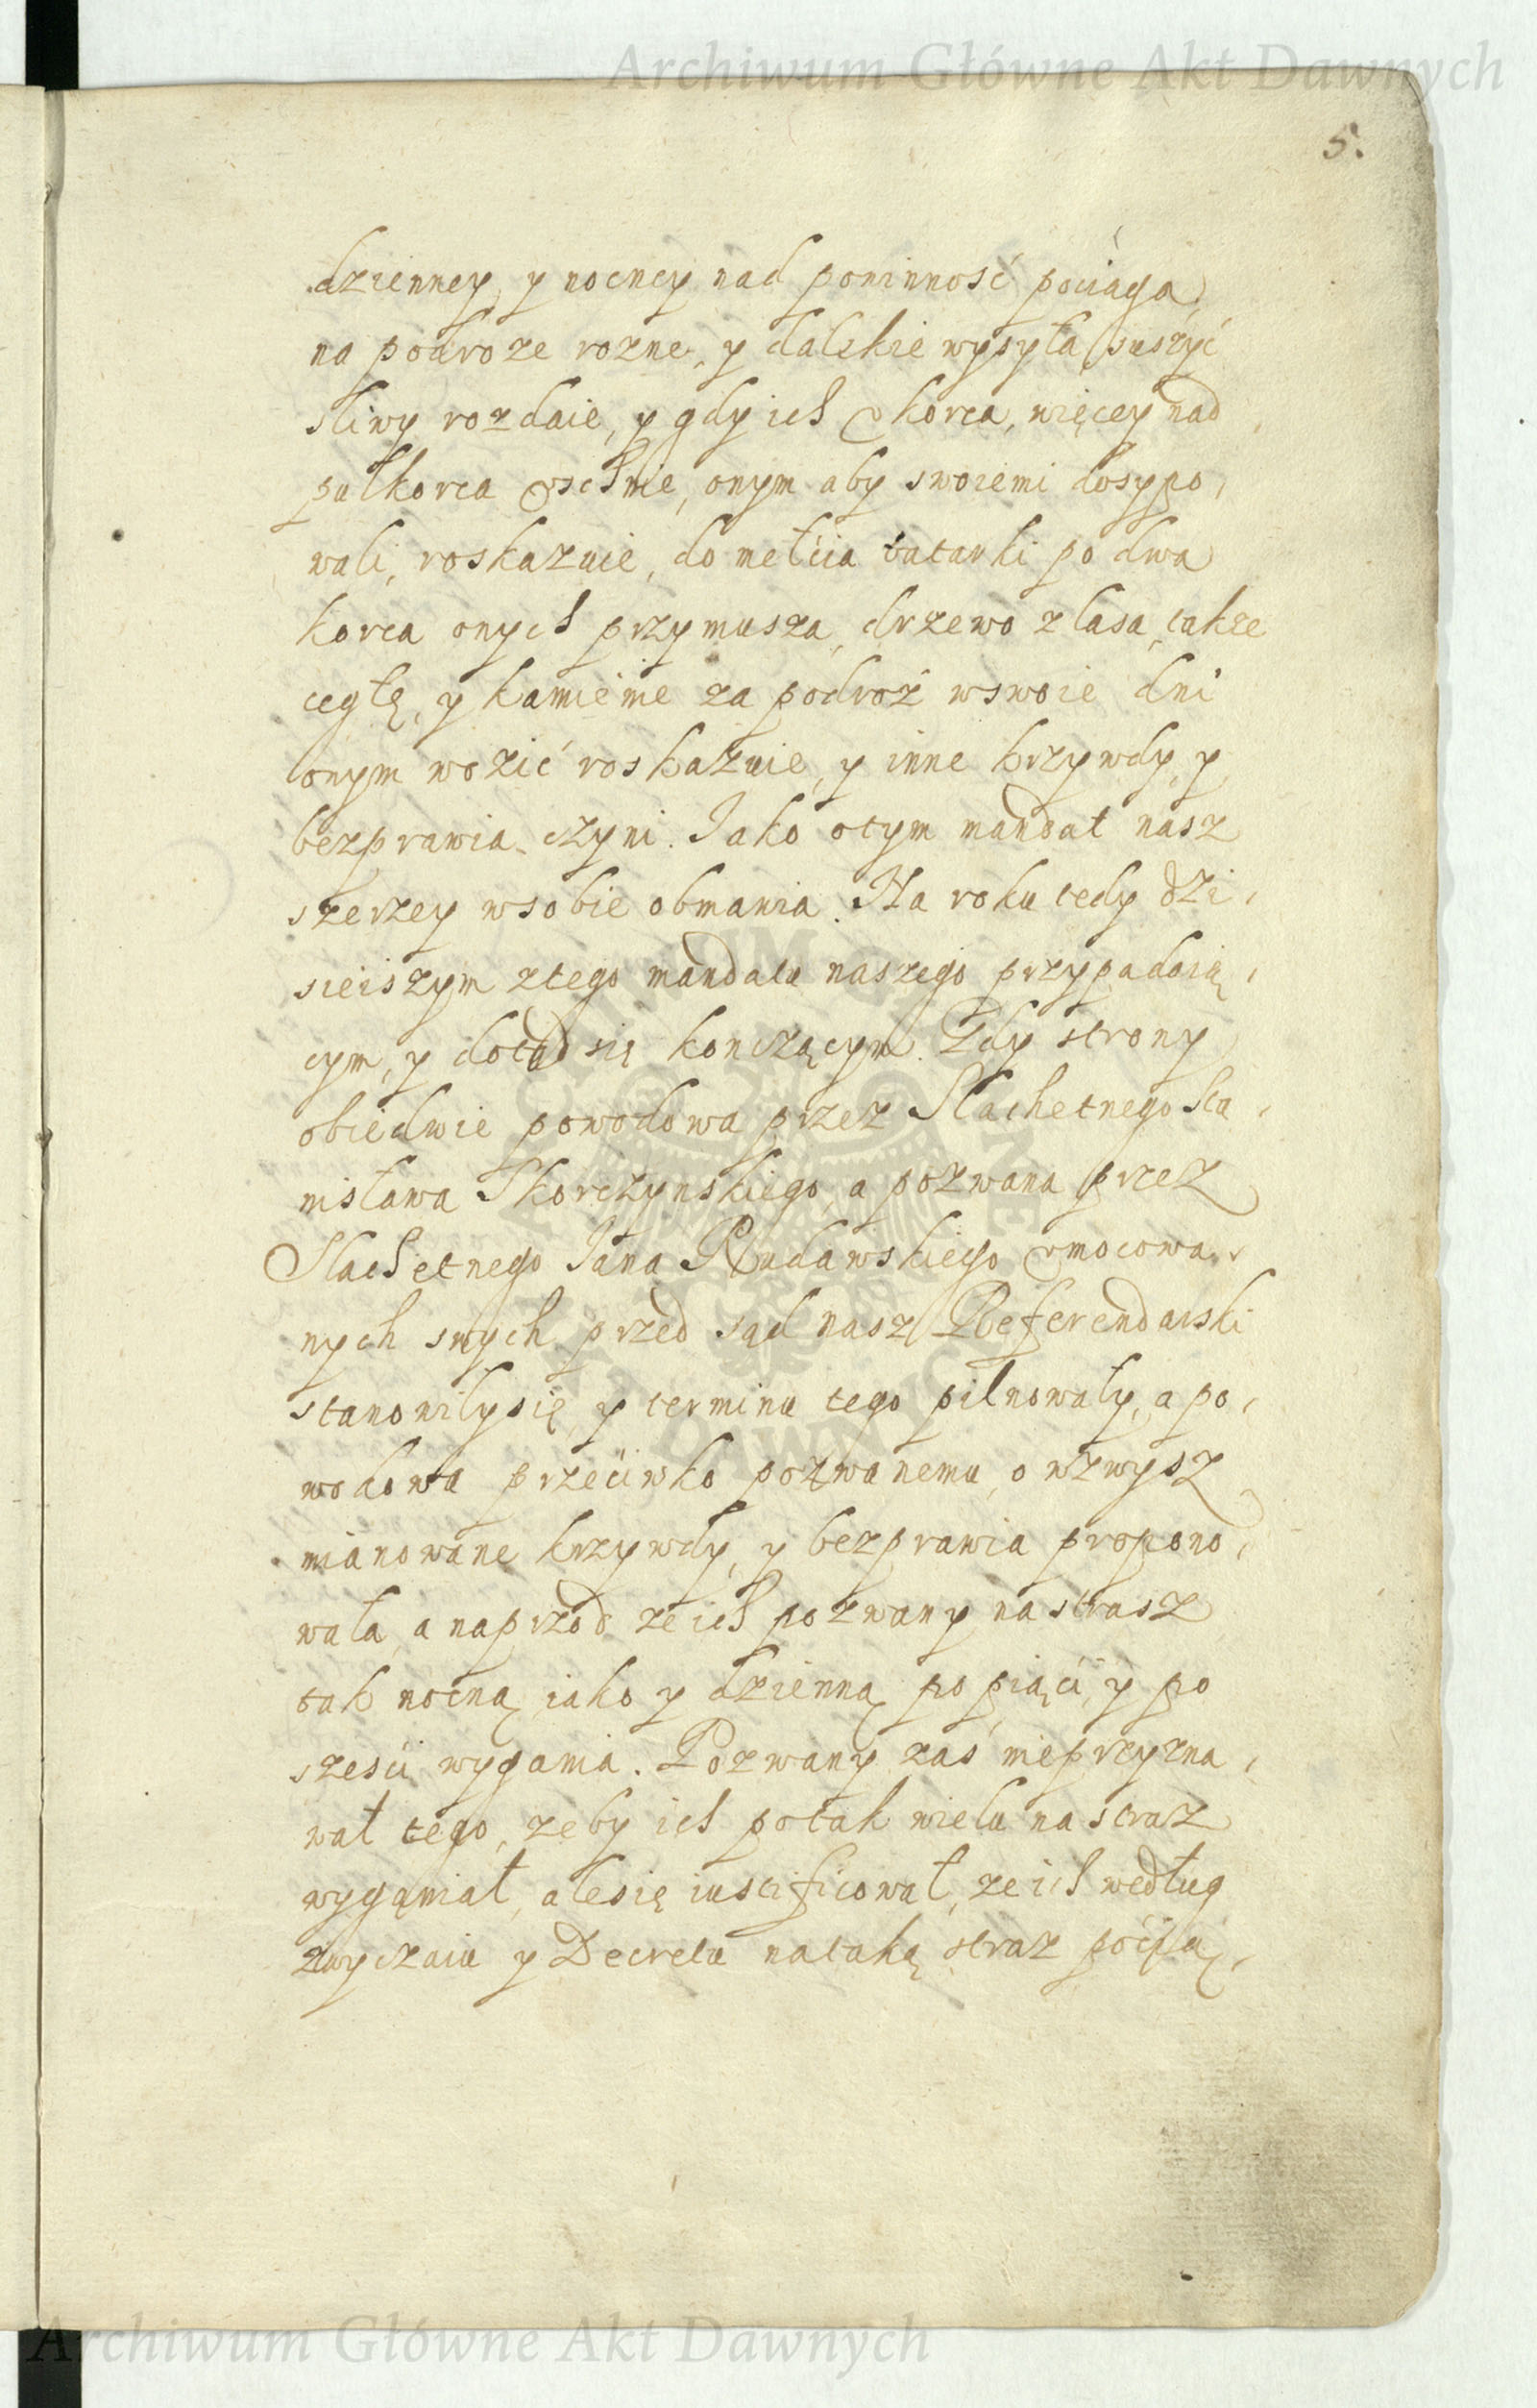 Archiwum Główne Akt Dawnych
5.
dzienney, y nocney nad powinność pociąga,
na podroze rozne, y dalekie wysyła, suszyć
sliwy rozdaie, y gdy ich z korca, więcey nad
pułkorca uschnie, onym aby swoiemi dosypo,
wali, roskazuie, do mełcia tatarki po dwa
korca onych przymusza, drzewo z lasa, także
cegłę, y kamienie za podroż wswoie dni
onym wozić roskazuie, y inne krzywdy, y
bezprawia czyni. Jako otym mandat nasz
szerzey wsobie obmawia. Na roku tedy dzi,
sieiszym ztego mandatu naszego przypadaią,
cym, y dotąd się konczącym. Gdy strony
obiedwie powodowa przez Slachetnego Sta,
nisława Skorczynskiego, a pozwana przez
Slachetnego Jana Rudawskiego umocowa,
nych swych przed sąd nasz Referendarski
stanowiły się, y terminu tego pilnowały, a po,
wodowa przeciwko pozwanemu, o wzwysz
mianowane krzywdy, y bezprawia propono,
wała, a naprzod ze ich pozwany na strasz
tak nocną iako y dzienną po piąci, y po
szesci wygania. Pozwany zaś nieprzyzna,
wał tego, zeby ich potak wielu na straz
wyganiał, alesię iustificował, ze ich według
zwyczaiu y Decretu nataką straz pocią,
Archiwum Główne Akt Dawnych